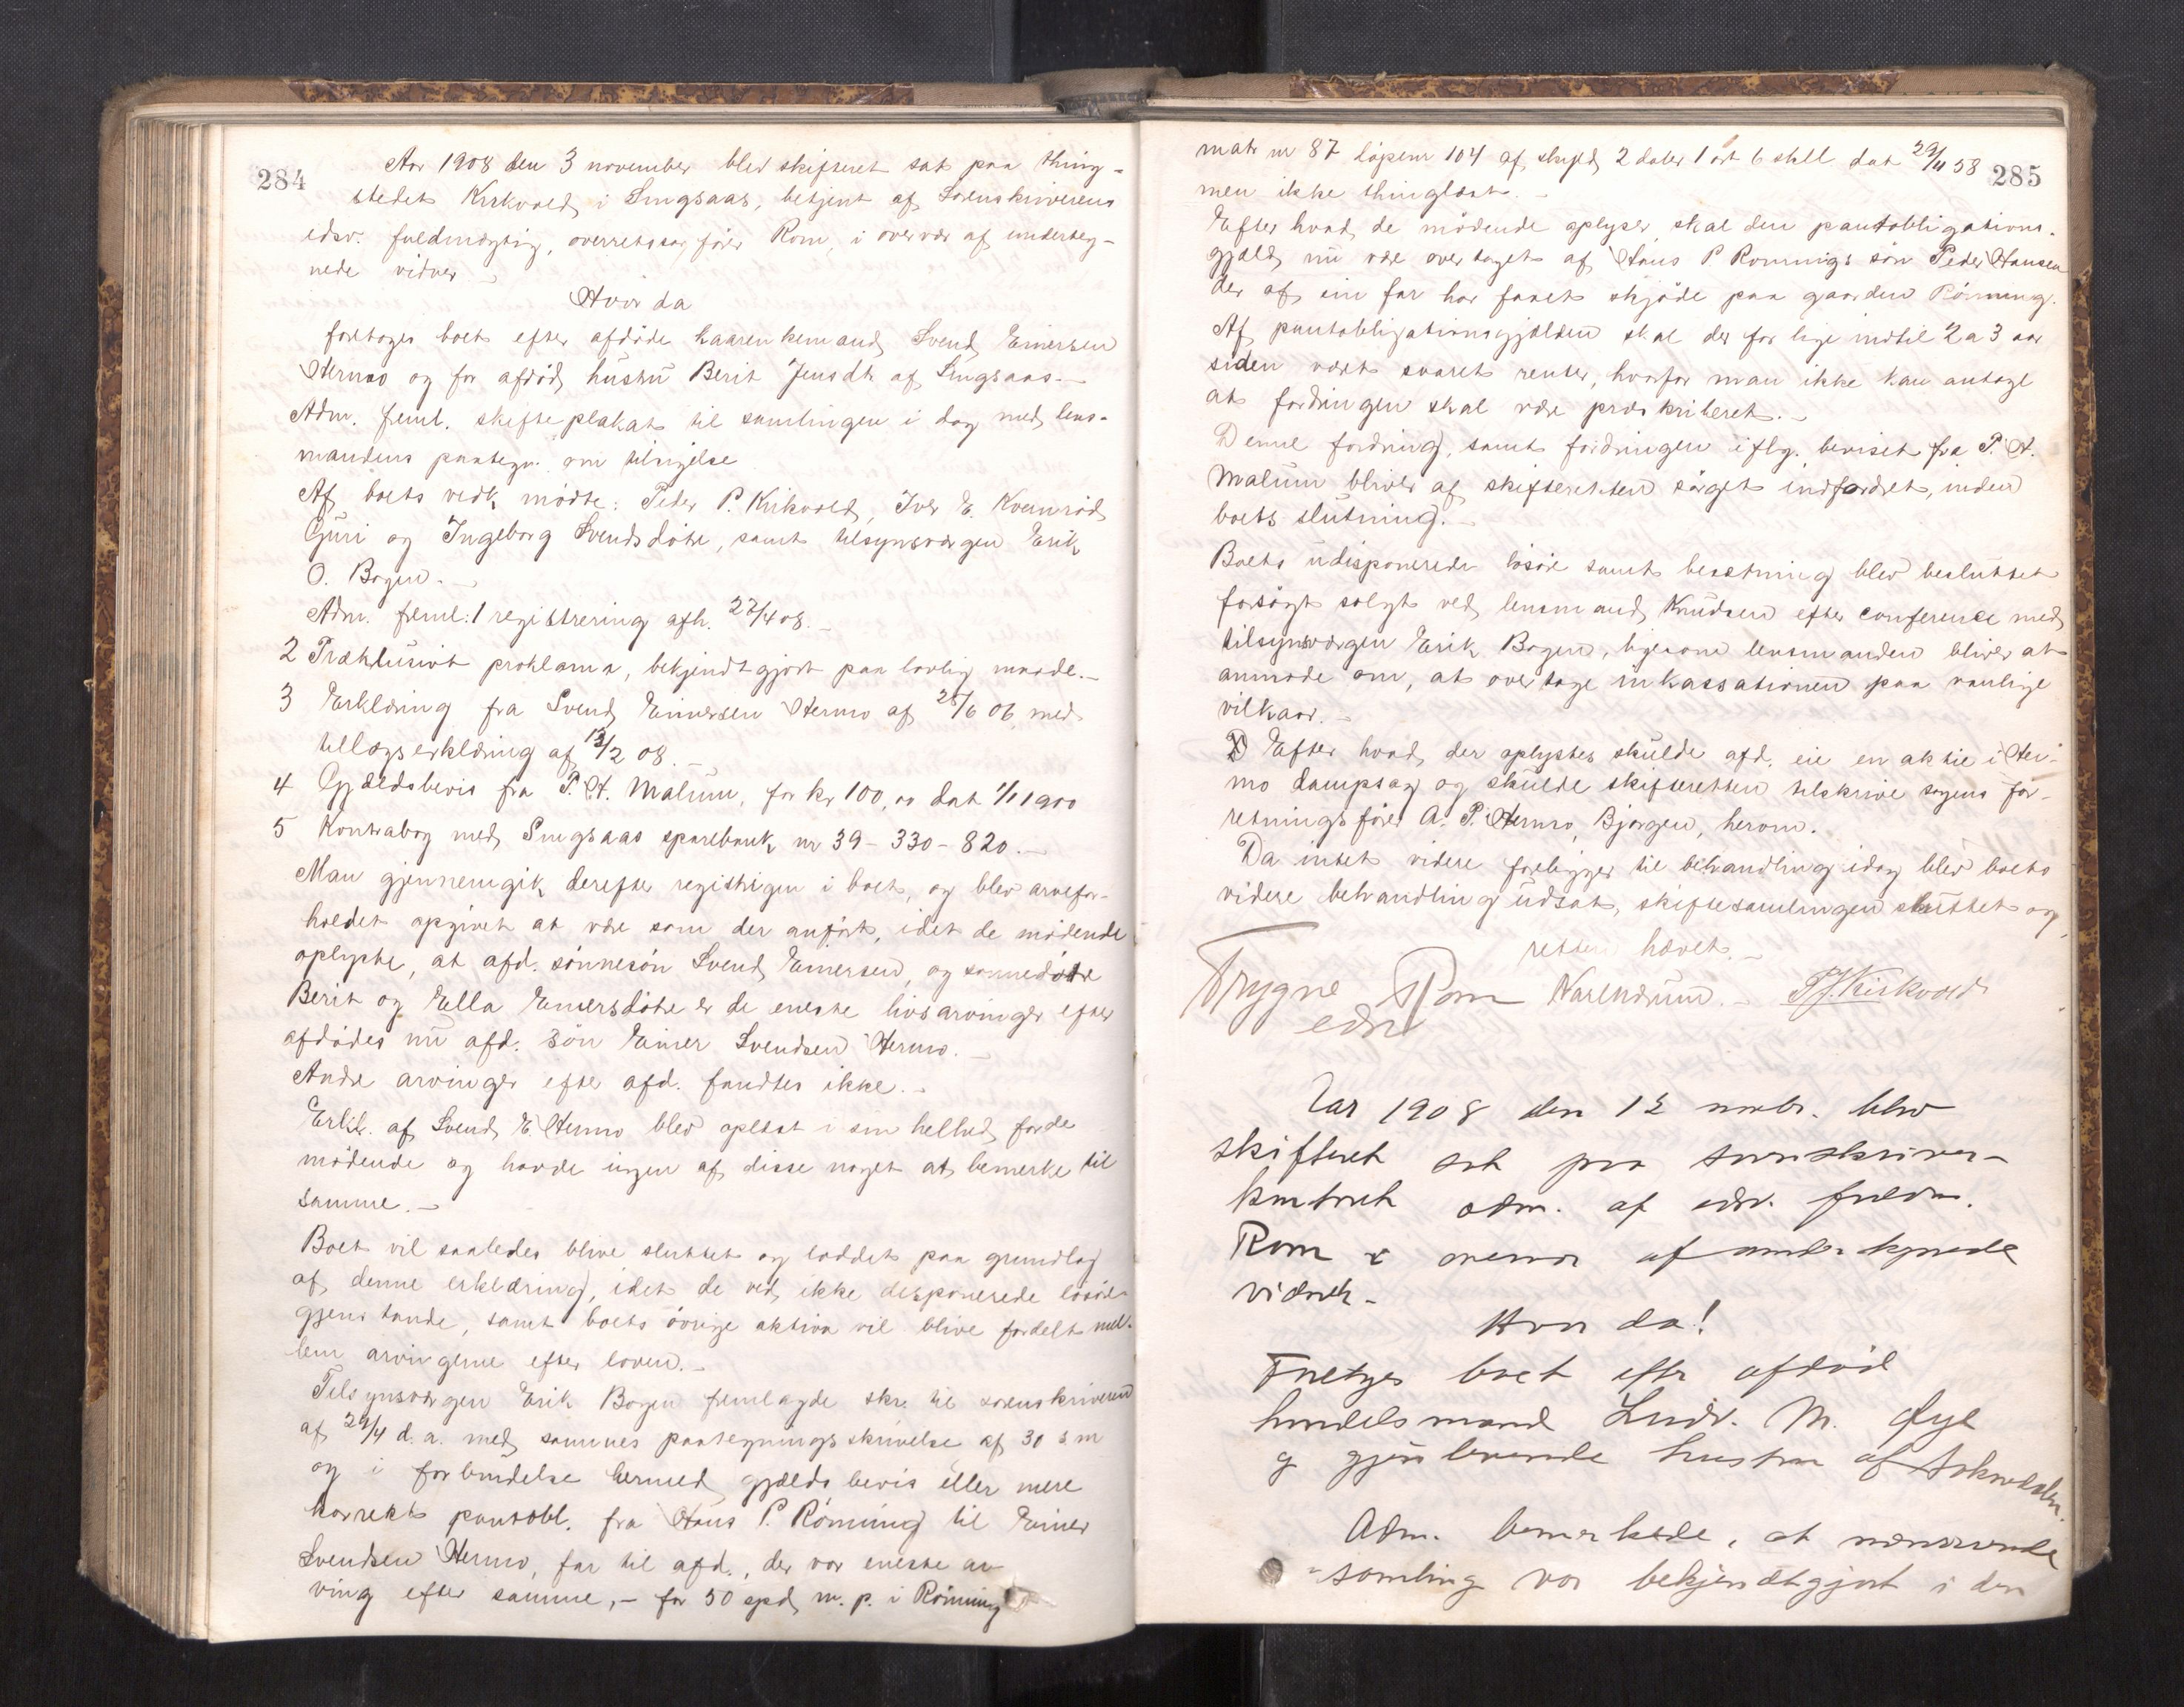 284
Aar 1908 den 3 november blev skifteret sat paa thing-
stedet Kirkvold i Singsaas, betjent af Sorenskriverens
edsv. fuldmægtig, overretssagfører Rom, i overvær af underteg-
nede vidner
Hvor da
foretoges boet efter afdøde kaarenkemand Svend Einersen
Hermo og før afdød hustru Berit Jensdtr. af Singsaas.-
Adm. freml. skifteplakat til samlingen i dag med lens-
mandens paategn. om tilsigelse
Af boets vedk. mødte: Peder P. Kirkvold, Iver E. Kvernrød,
Guri og Ingeborg Svendsdøtre, samt tilsynsværgen Erik
O. Bogen.-
Adm. freml: 1 registrering afh. 27/4 08.-
2 Præklusivt proklama, bekjendtgjort paa lovlig maade.-
3 Erklæring fra Svend Einersen Hermo af 25/6 06 med
tillægserklæring af 13/2 08.-
4 Gjældsbevis fra P. H. Malum, for kr 100,00 dat 1/1 1900
5 Kontrabog med Singsaas sparebank nr 39-330-820.-
Man gjennemgik derefter registrigen i boet, og blev arvefor-
holdet opgivet at være som der anført, idet de mødende
oplyste, at afd. sønnesøn Svend Einersen, og sønnedøtre
Berit og Ella Einersdøtre er de eneste livsarvinger efter
afdødes nu afd. søn Einer Svendsen Hermo.-
Andre arvinger efter afd. fandtes ikke.-
Erkl. af Svend E. Hermo blev oplæst i sin helhed for de
mødende og havde ingen af disse noget at bemerke til
samme.-
Boet vil saaledes blive sluttet og loddet paa grundlag
af denne erklæring, idet de ved ikke disponerede løsøre
gjenstande, samt boets øvrige aktiva vil blive fordelt mel-
lem arvingerne efter loven.-
Tilsynsværgen Erik Bogen fremlagde skr. til sorenskriveren
af 29/4 d.a. med sammes paategningsskrivelse af 30 s m
og i forbindelse hermed gjældsbevis eller mere
korrekt pantobl. fra Hans P. Rønning til Einer
Svendsen Hermo, far til afd., der var eneste ar-
ving efter samme,- for 50 spd, m. p. i Rønning
285
matr nr 87 løpenr 104 af skyld 2 daler 1 ort 6 skll dat 29/11 58
men ikke thinglæst.-
Efter hvad de mødende oplyser skal den pantobligations-
gjæld nu være overtaget af Hans P. Rønnings søn Peder Hansen
der af sin far har faaet skjøde paa gaarden Rønning.
Af pantobligationsgjælden skal der for lige indtil 2 a 3 aar
siden været svaret renter, hvorfor man ikke kan antage
at fordringen skal være præskriberet.-
Denne fordring, samt fordringen iflg. beviset fra P. H.
Malum bliver af skifteretten sørget indfordret, inden
boets slutning.-
Boets udisponerede løsøre samt besetning blev besluttet
forsøgt solgt ved lensmand Knudsen efter conference med
tilsynsværgen Erik Bogen, ligesom lensmanden bliver at
anmode om, at overtage inkassationen paa vanlige
vilkaar.-
Efter hvad der oplystes skulde afd. eie en aktie i Her-
mo dampsag og skulde skifteretten tilskrive sagens for-
retningsfører A. P. Hermo, Bjørgen, herom.
Da intet videre foreligger til behandling idag blev boets
videre behandling udsat, skiftesamlingen sluttet og
retten hævet.-
Trygve Rom Narendrum.- P J. Kirkvold
edsv
Aar 1908 den 12 novbr. blev
skifteret sat paa sorenskriver-
kontoret adm. af edsv. fuldm.
Rom i overvær af undertegnede
vidner-
Hvor da!
Foretoges boet efter afdød
handelsmand Ludv. M. Øye
og gjenlevende hustru af
Adm. bemerkede, at nærværende
samling var bekjendtgjort i den